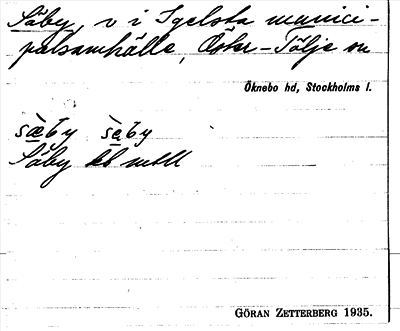 Säby, v i Igelsta munici-
palsamhälle, Öster-Tälje sn
Öknebo hd, Stockholms l.
sæ̀by sὲby
Säby kb mtll
GÖRAN ZETTERBERG 1935.